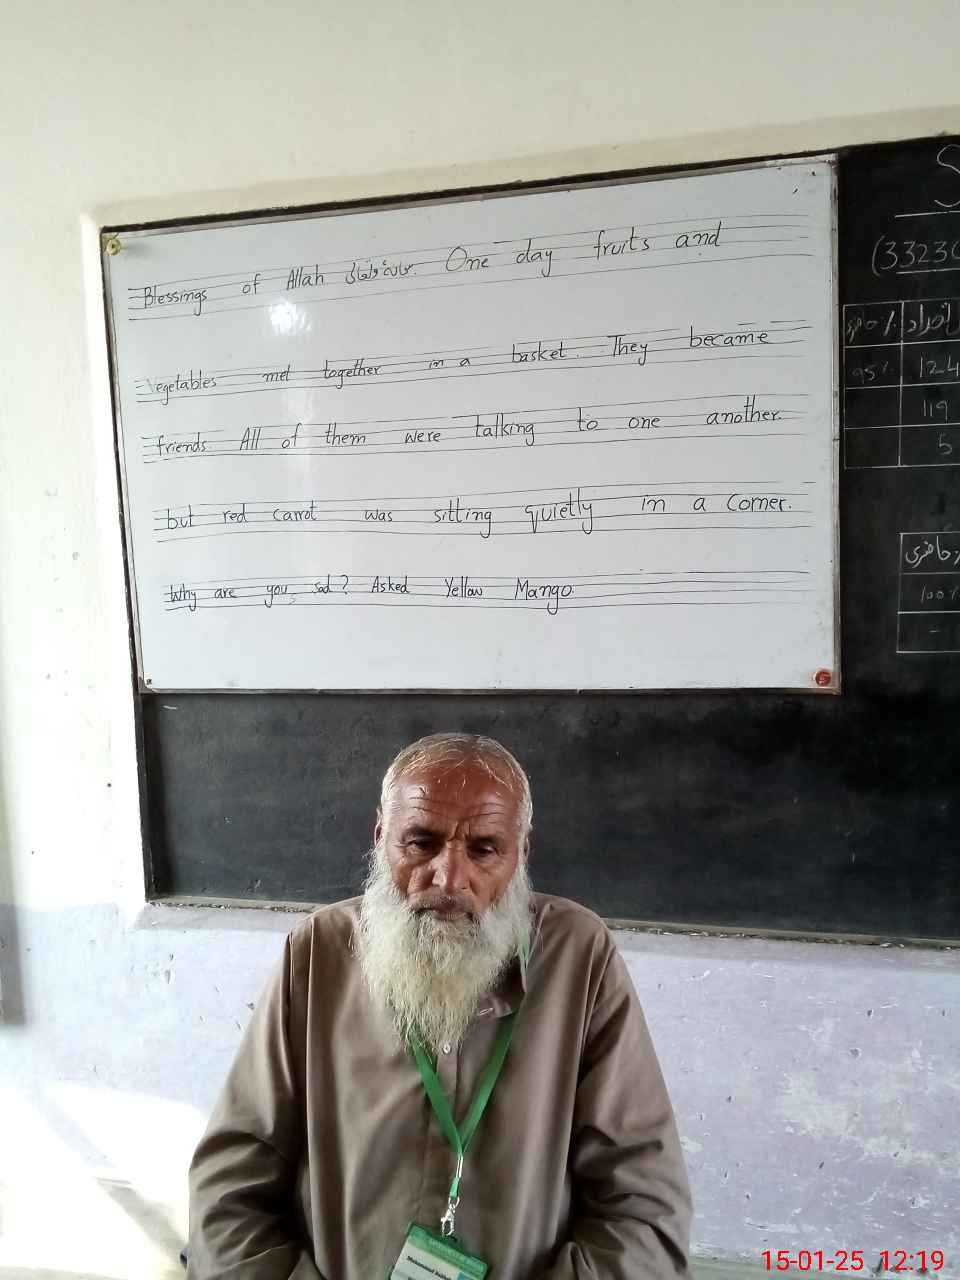 Blessings of Allah سبحانہٗ وتعالیٰ. One day fruits and
Vegetables met together in a basket. They became
friends. All of them were talking to one another.
but red carrot was sitting quietly in a corner.
Why are you sad? Asked Yellow Mango.
S
(3323
تعداد
95%
124
119
5
حاضری
100%
-
Muhammad
15-01-25 12:19